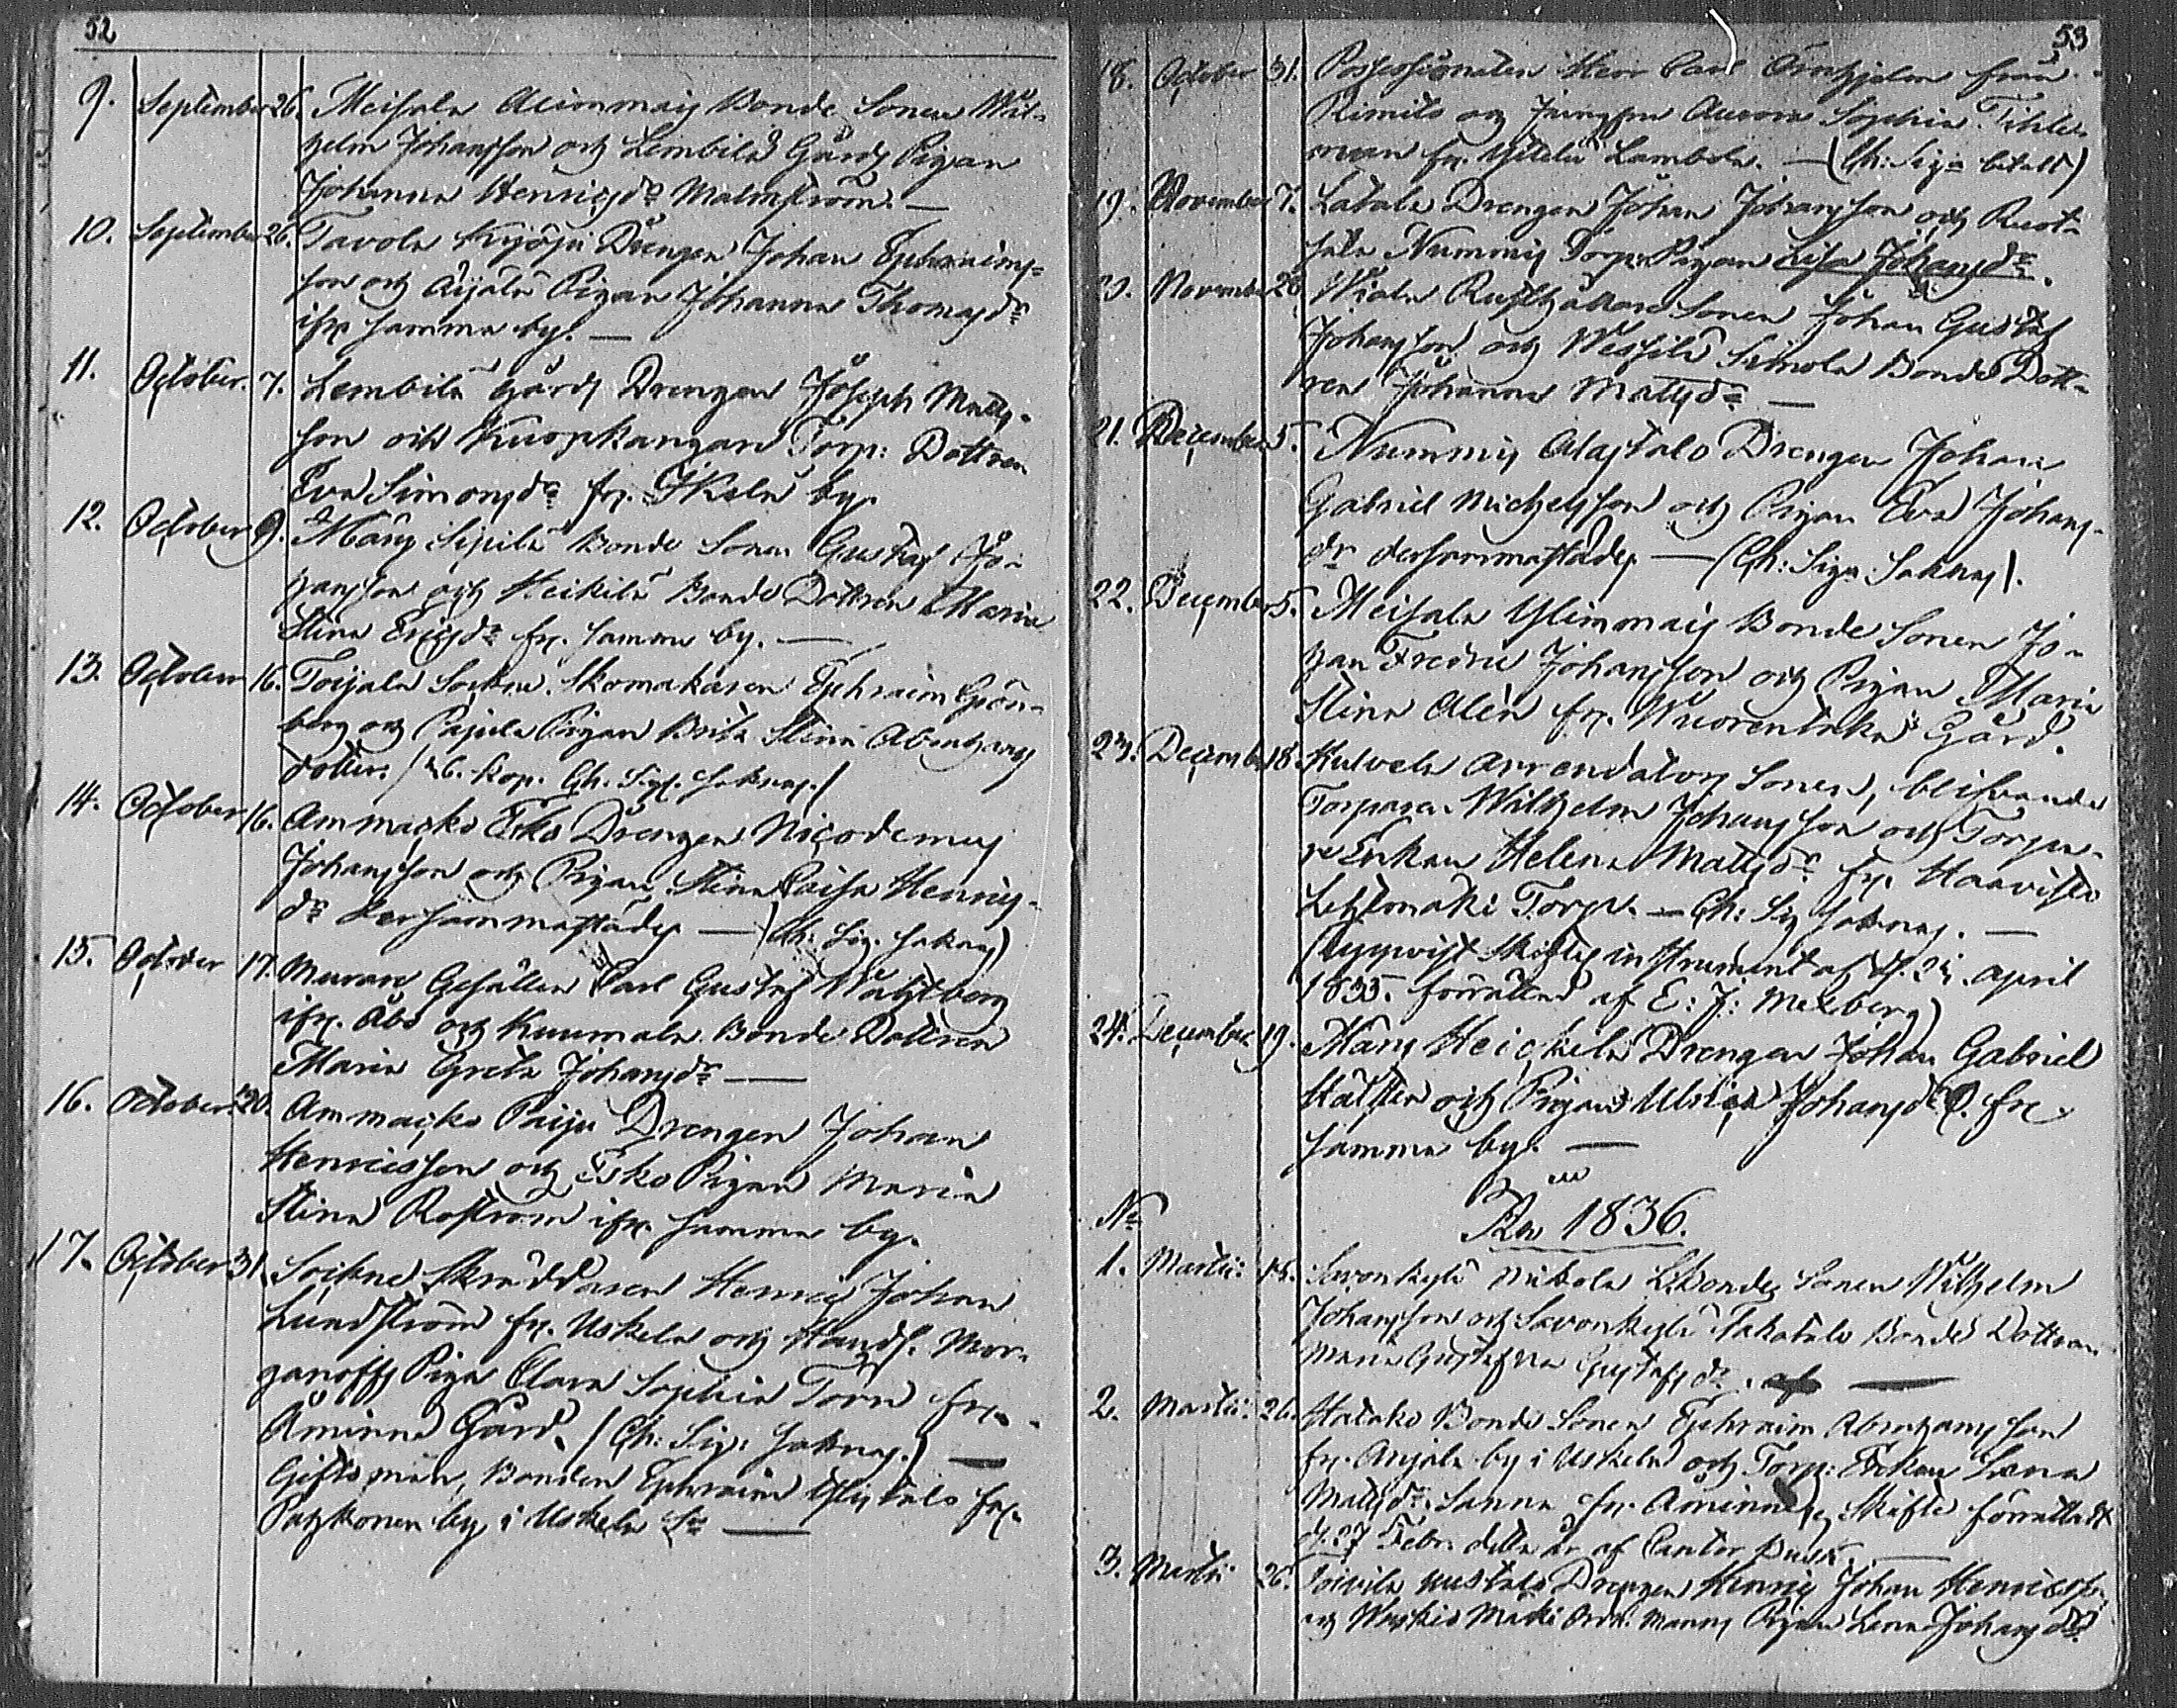 52
9. September 26. Meisala Alimmais Bonde Sonen Wil-
helm Johansson och Lembilä Gårds Pigan
Johanna Henricsdr Malmström. —
10. September 26. Tavola Drengen Johan Ephraims-
son och Äijälä Pigan Johanna Thomasdr
ifr. samma by. —
11. October. 7. Lembilä Gårds Drengen Joseph Matts-
son och Kuopkangare Torp: Dottren
Eva Simonsdr fr. Isksala by.
12. October 9. Märy Sipilä Bonde Sonen Gustaf Jo-
hansson och Heikilä Bonde Dottren Maria
Stina Ericsdr fr. samma by. —
13. October 16. Toijala Sockne Skomakaren Ephraim Grön-
berg och Pajula Pigan Brita Stina Abrahams
dotter. / kop. Ch. Sig. saknas. /
14. October 16. Ammasko Esko Drengen Nicodemus
Johansson och Pigan Stina Caisa Henrics-
dr dersammastädes — (Ch: Sig. saknas)
15. October 17. Murare Gesällen Carl Gustaf Wahlberg
ifr. Åbo och Kuumala Bonde Dottren
Maria Greta Johansdr —
16. October. 20. Ammasko Paiju Drengen Johan
Henricsson och Esko Pigan Maria
Stina Roström ifr. samma by.
17. October 31. Sockne Skräddaren Henric Johan
Lundström fr. Uskela och Handl. Mor-
ganoffs Piga Clara Sophia Törn fr.
Åminne Gård. / Ch: Sig: saknas. / —
Giftoman, Bonden Ephraim Ylistalo fr.
by i Uskela Sn —
53
18. October 31. Possessionaten Herr Carl Örnhjelm från
Rimito och Jungfru Aurora Sophia Tihle-
man fr. Yltelä Lambola. — (Ch: Sig a betalt)
19. November 7. Latala Drengen Johan Johansson och Ruot-
sala Nummis Torp: Pigan Lisa Johansdr.
20. November 20 Wiala Rusthållare Sonen Johan Gustaf
Johansson och Wessilä Simola Bonde Dott-
ren Johanna Mattsdr —
21. December 5. Nummis Alastalo Drengen Johan
Gabriel Michelsson och Pigan Eva Johans-
dr dersammastädes — (Ch: Sig: Saknas).
22. December 5. Meisala Ylimmais Bonde Sonen Jo-
han Fredric Johansson och Pigan Maria
Stina Alén fr. Wuorentaka Gård.
23. December 18. Kulvela Arrendators Sonen, blifvande
Torpare Wilhelm Johansson och Torpa-
re Enkan Helena Mattsdr. fr. Haavisto
Lehtomäki Torp. — Ch: Sig saknas. —
(uppvist Skiftes instrument af d. 21. April
1835. förrättad af E: J: Mellberg)
24. December 19. Märy Heickelä Drengen Johan Gabriel
Hällsten och Pigan Ulrica Johansdr. fr.
samma by. —
No År 1836.
1. Martii: 15. Savonkylä Mikola Bondes Sonen Wilhelm
Johansson och Savonkylä Takatalo Bonde Dottren
Maria Gustafva Gustafsdr. —
2. Martii: 26. Hatako Bonde Sonen Ephraim Abrahamsson
fr. Anjala by i Uskela och Torp: Enkan Lena
Mattsdr. Sanna fr. Åminne, Skifte förrättadt
d. 27 Febr. detta år af Cantor Busck. —
3. Martii 26. Toivila Uustalo Drengen Henric Johan Henricsson
och Mäki Ordn: Mans Pigan Lena Johansdr.